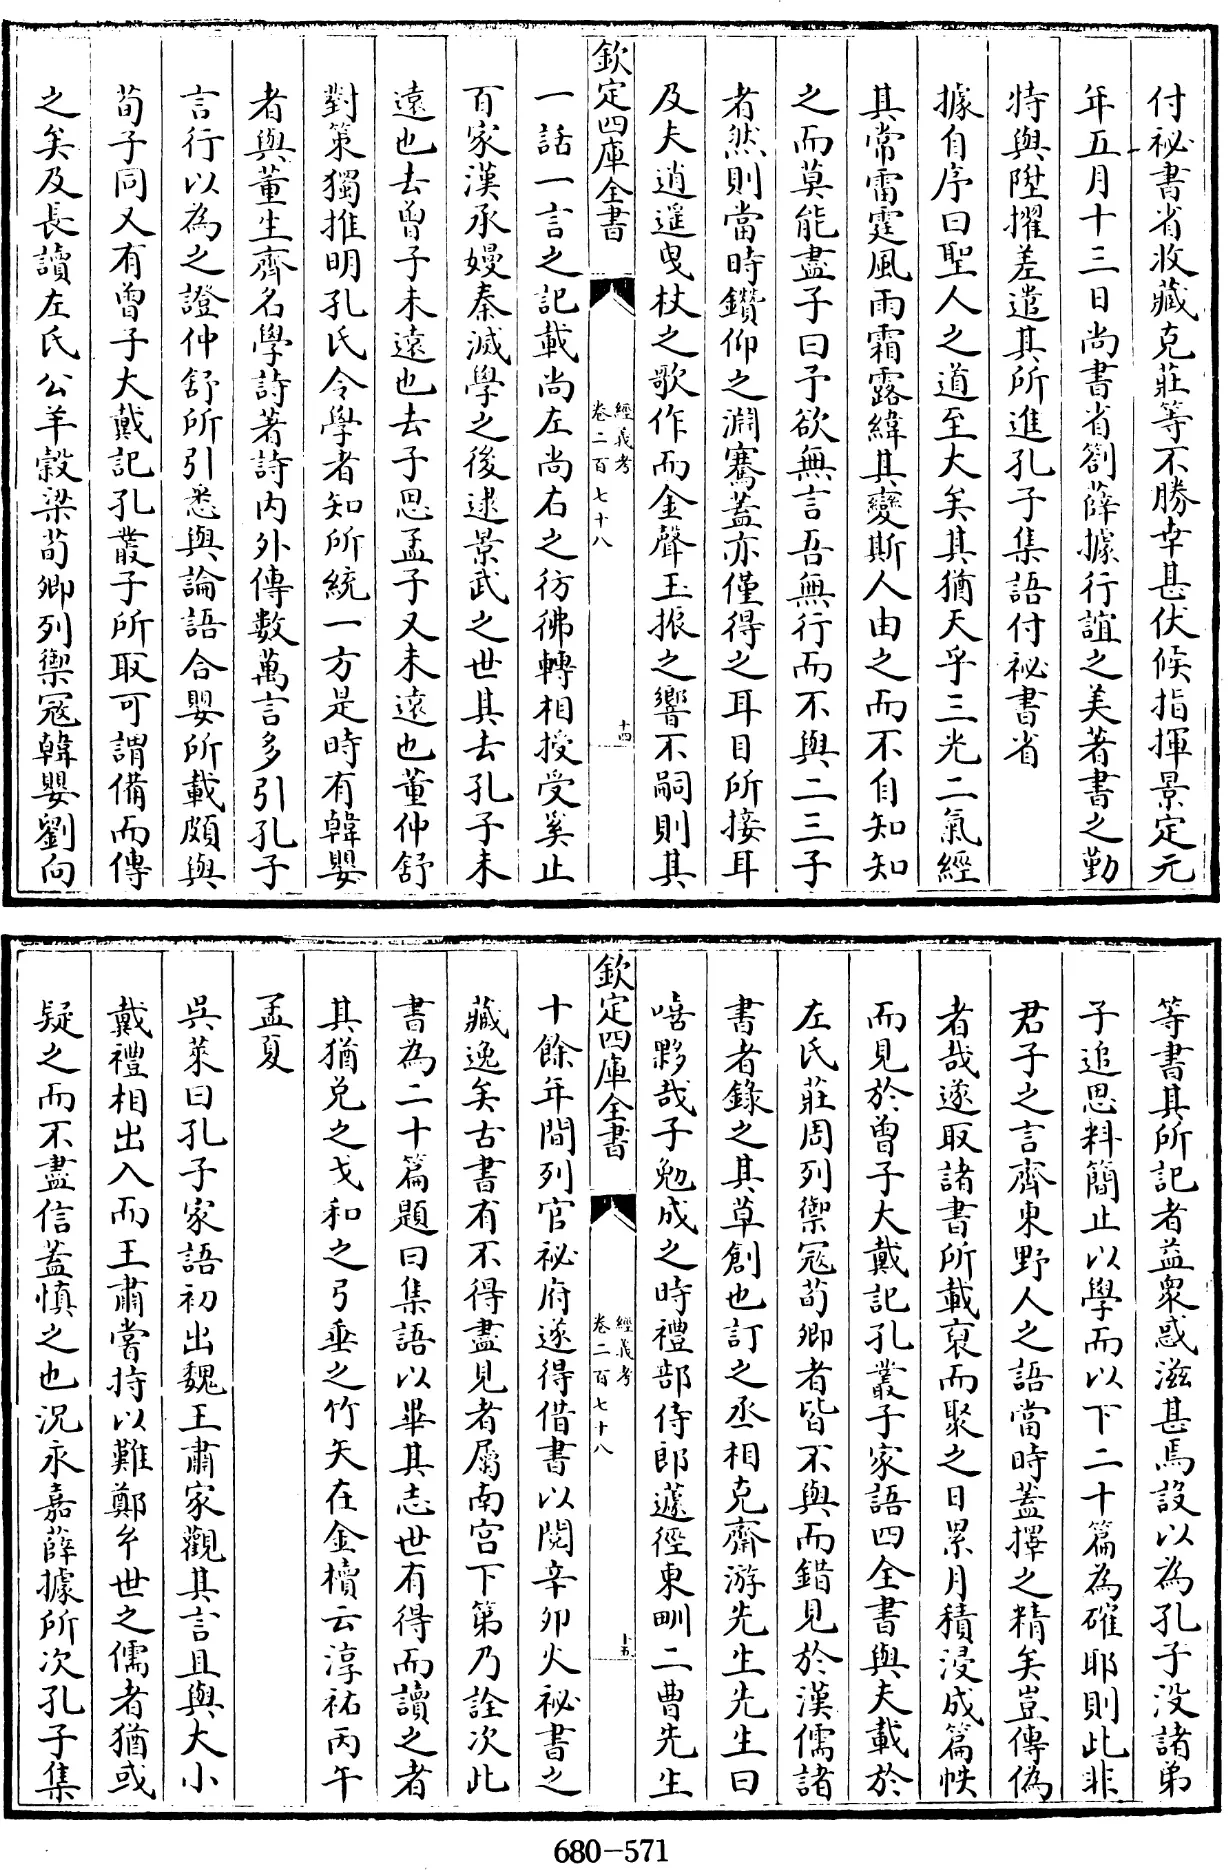 付秘書省收藏克莊等不勝幸甚伏候指揮景定元
年五月十三日尚書省劄薛據行誼之美著書之勤
特與陞擢差遣其所進孔子集語付秘書省
據自序曰聖人之道至大矣其猶天乎三光二氣經
其常雷霆風雨霜露緯其變斯人由之而不自知知
之而莫能盡子曰予欲無言吾無行而不與二三子
者然則當時鑽仰之淵騫蓋亦僅得之耳目所接耳
及夫逍遥曳杖之歌作而金聲玉振之響不嗣則其
欽定四庫全書
經義考
卷二百七十八
十四
一話一言之記載尚左尚右之彷彿轉相授受奚止
百家漢承嫚秦滅學之後逮景武之世其去孔子未
遠也去曾子未遠也去子思孟子又未遠也董仲舒
對策獨推明孔氏令學者知所統一方是時有韓嬰
者與董生齊名學詩著詩内外傳數萬言多引孔子
言行以為之證仲舒所引悉與論語合嬰所載頗與
荀子同又有曾子大戴記孔叢子所取可謂備而傳
之矣及長讀左氏公羊榖梁荀卿列禦冦韓嬰劉向
等書其所記者益衆惑滋甚焉設以為孔子没諸弟
子追思料簡止以學而以下二十篇為確耶則此非
君子之言齊東野人之語當時蓋擇之精矣豈傳偽
者哉遂取諸書所載裒而聚之日累月積浸成篇帙
而見於曾子大戴記孔叢子家語四全書與夫載於
左氏莊周列禦冦荀卿者皆不與而錯見於漢儒諸
書者錄之其草創也訂之丞相克齋游先生先生曰
嘻夥哉子勉成之時禮部侍郎蘧徑東甽二曹先生
欽定四庫全書
經義考
卷二百七十八
十五
十餘年間列官秘府遂得借書以閲辛卯火秘書之
藏逸矣古書有不得盡見者屬南宫下第乃詮次此
書為二十篇題曰集語以畢其志世有得而讀之者
其猶兑之戈和之弓垂之竹矢在金櫝云淳祐丙午
孟夏
吳萊曰孔子家語初出魏王肅家觀其言且與大小
戴禮相出入而王肅嘗持以難鄭𤣥世之儒者猶或
疑之而不盡信蓋慎之也况永嘉薛據所次孔子集
680-571